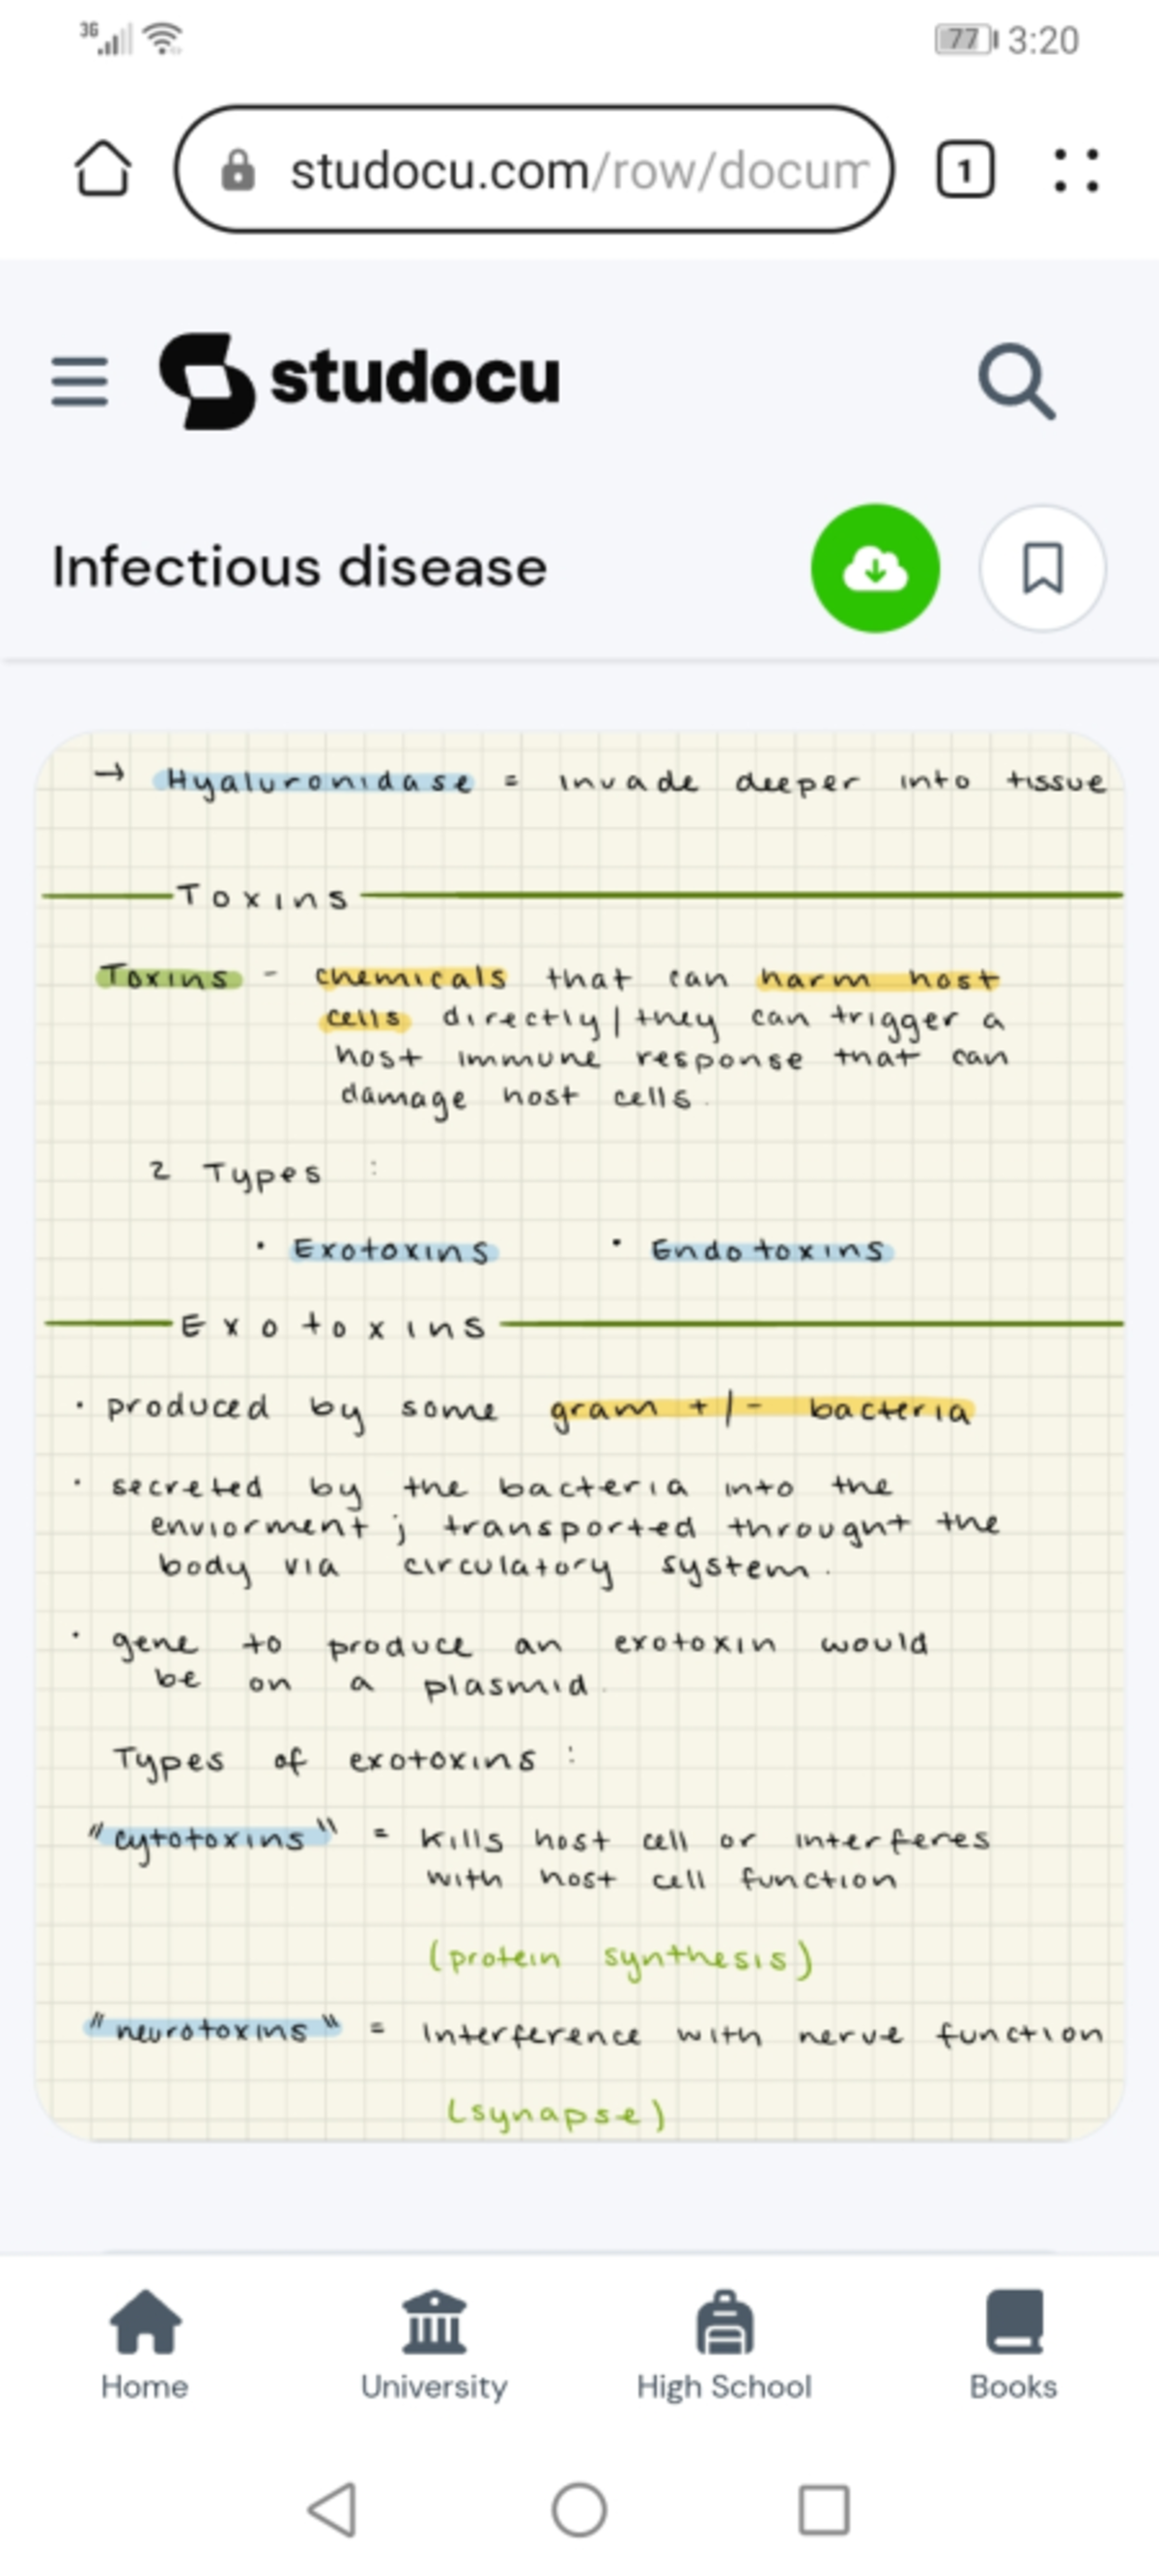 3G 77 3:20
studocu.com/row/docum 1
studocu
Infectious disease
→ Hyaluronidase = invade deeper into tissue
Toxins
Toxins - chemicals that can harm host
cells directly | they can trigger a
host immune response that can
damage host cells.
2 Types :
• Exotoxins • Endotoxins
Exotoxins
• produced by some gram +/- bacteria
• secreted by the bacteria into the
enviorment ; transported throught the
body via circulatory system.
• gene to produce an exotoxin would
be on a plasmid.
Types of exotoxins :
"cytotoxins" = kills host cell or interferes
with host cell function
(protein synthesis)
"neurotoxins" = Interference with nerve function
(synapse)
Home University High School Books